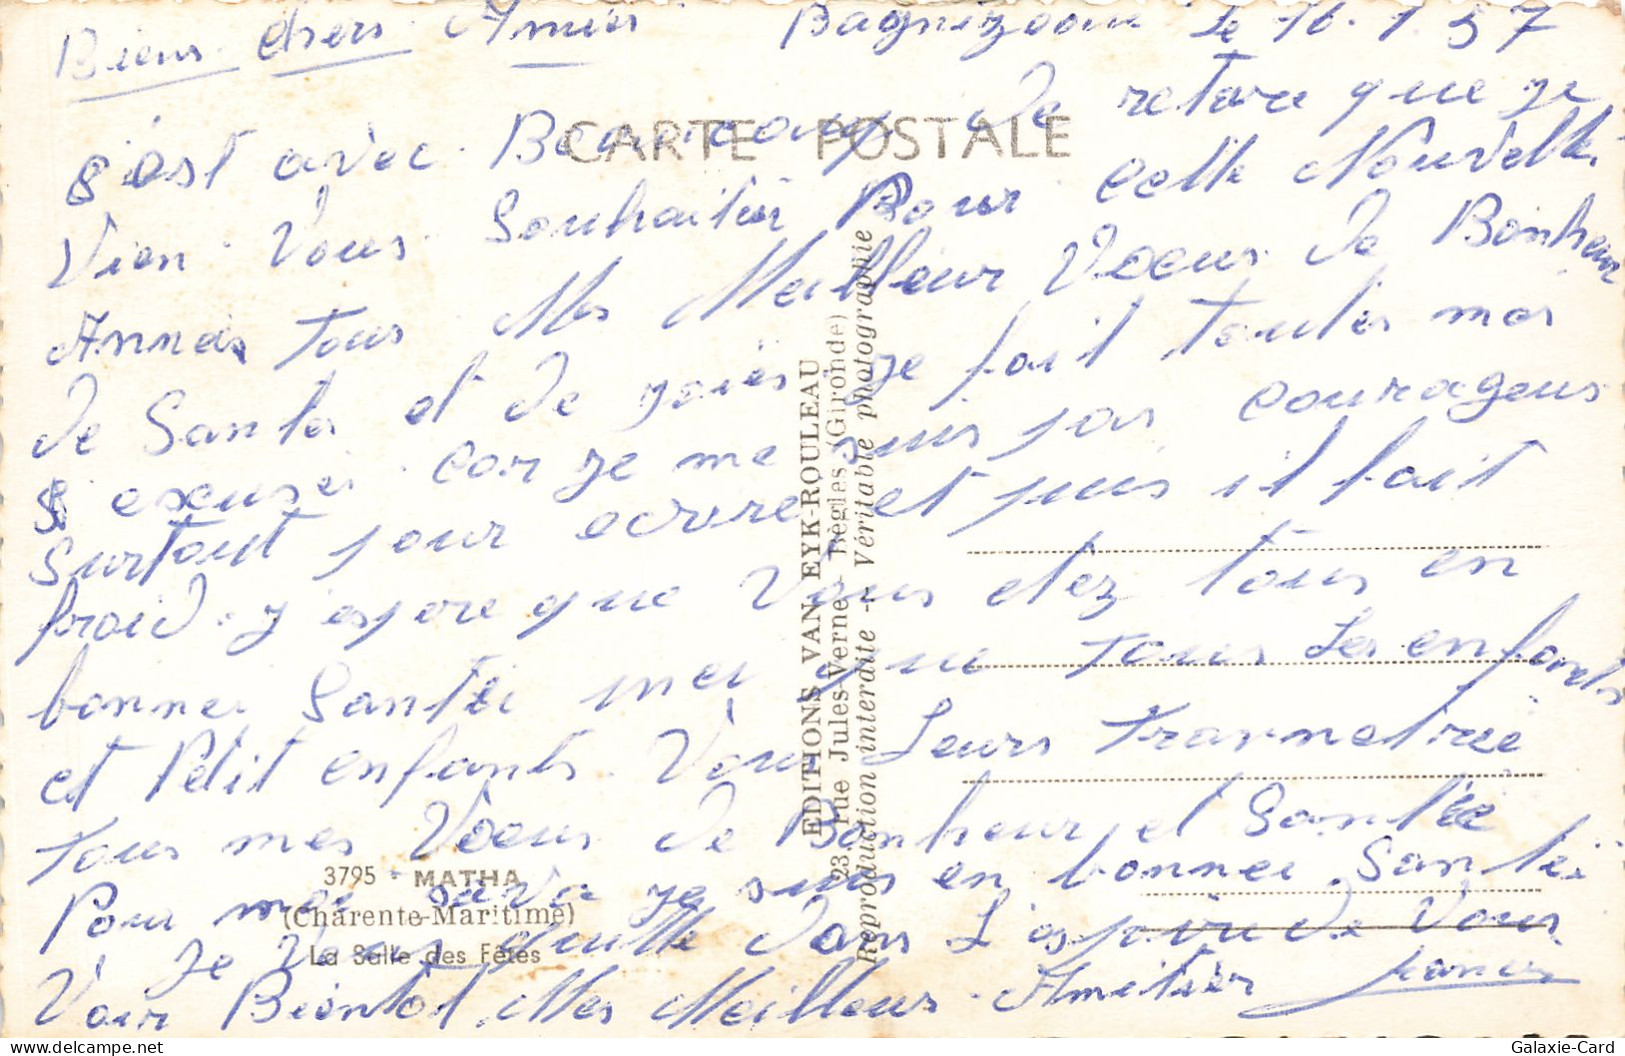 Biens chers Amies Bagnizeau le 16.1.57
CARTE POSTALE
s'est avec Beaucoup de retare que je
Vien Vous Souhaitér Pour cette Nouvelle
Année tous Mes Meilleur Voeus de Bonheur
de Santé et de joies je fait toutes mes
excuses car je me suis pas courageus
surtout pour ecrire et puis il fait
froid. j'espere que Vous etez tous en
bonne Santée que tous Les enfants
et Petit enfants. Vous Leurs
tous mes Voeus de Bonheur, et Santée
Pour moi sava je suis en bonne Santée
Je Vous quitte dans L'espoire de Vous
Voir Bientot Mes Meilleurs Amitiér
EDITIONS VAN EYK-ROULEAU
23, Rue Jules-Verne - Bègles (Gironde)
Reproduction interdite - Véritable photographie
3795 - MATHA
(Charente-Maritime)
La Salle des Fêtes
Galaxie-Card